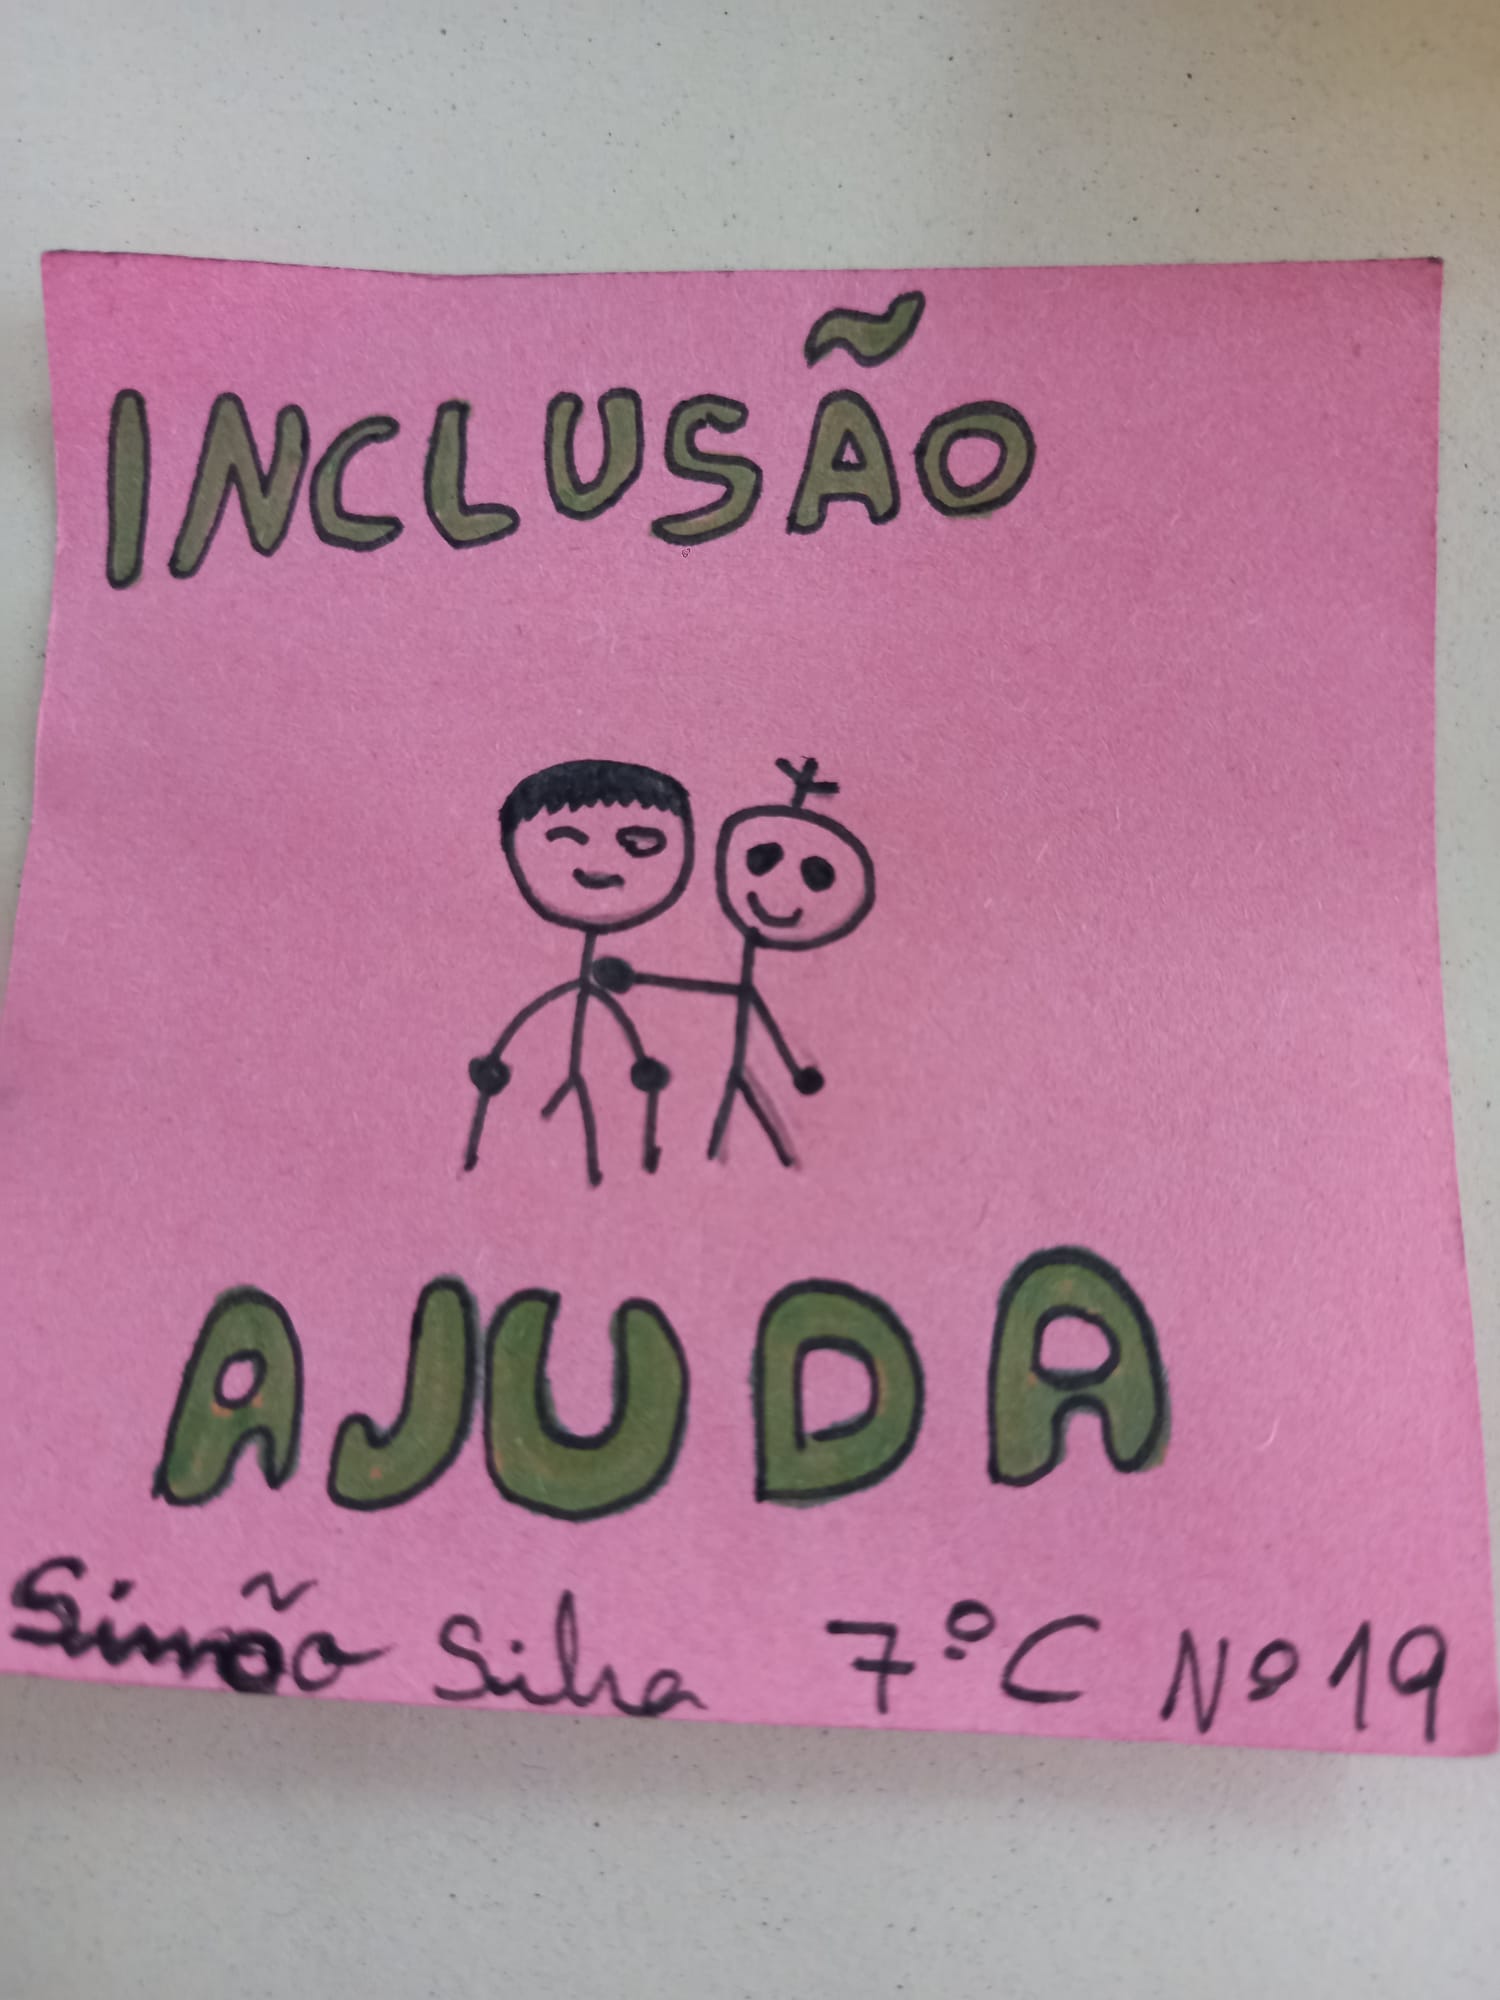 INCLUSÃO
AJUDA
Simão Silva 7º C Nº 19